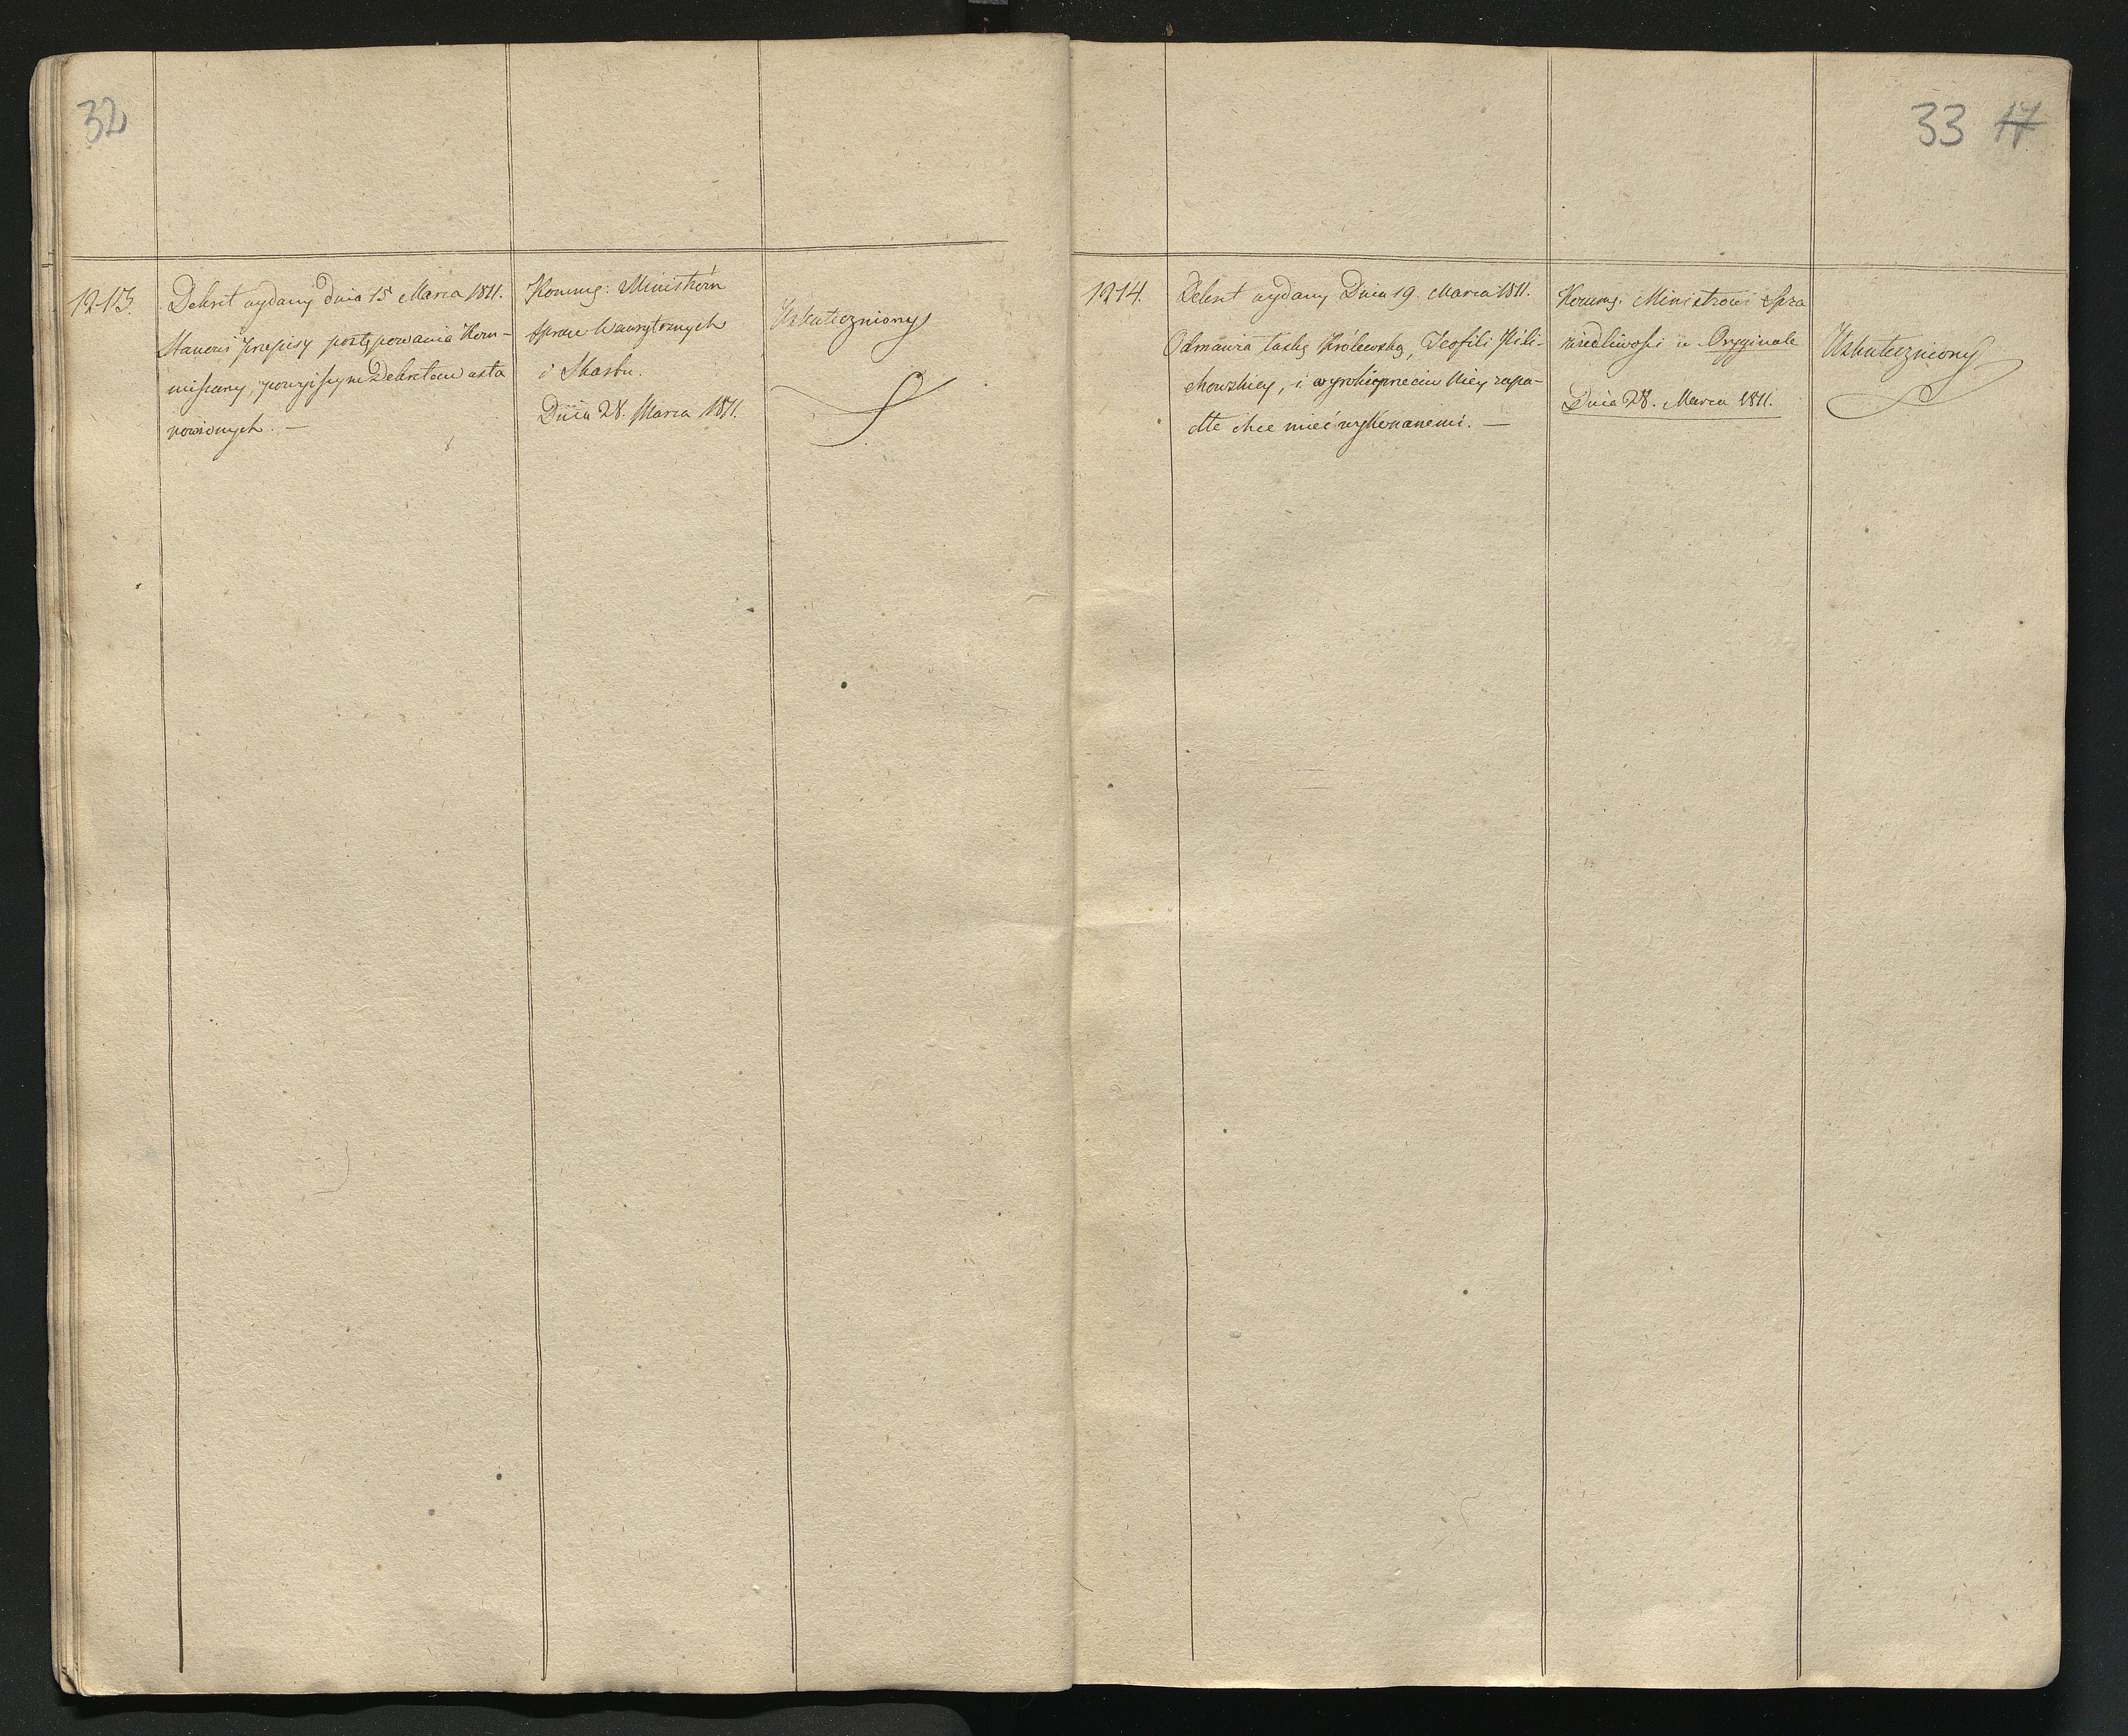 32
1213.
Dekret wydany dnia 15 Marca 1811.
Stanowi przepisy postępowania Kom-
missarzy, powyższym Dekretem usta
nowionych. —
Kommg: Ministrów
Spraw Wewnętrznych
i Skarbu.
Dnia 28. Marca 1811.
Uskuteczniony
33 17
1214.
Dekret wydany Dnia 19. Marca 1811.
Odmawia łaskę Królewską, Teofili Kili-
chowskiey, i wyrok przeciw Niey zapa-
dłe chce mieć wykonanemi. —
Kommg. Ministrowi Spra
wiedliwości w Oryginale
Dnia 28. Marca 1811.
Uskuteczniony